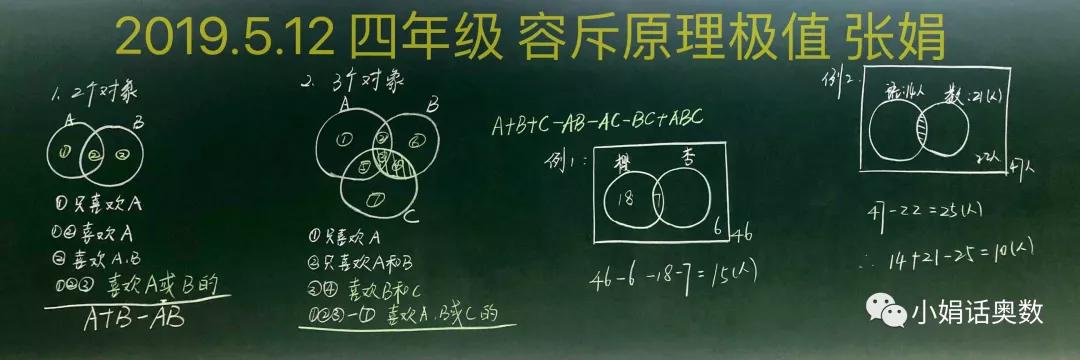 2019.5.12 四年级 容斥原理极值 张娟
1. 2个对象
A
B
① ② ③
①只喜欢A
①②喜欢A
②喜欢A.B
①②③ 喜欢A或B的
A+B-AB
2. 3个对象
A
B
① ② ⑥
③ ④
⑦
C
①只喜欢A
②只喜欢A和B
③④ 喜欢B和C
①②③-⑦ 喜欢A.B或C的
A+B+C-AB-AC-BC+ABC
例1:
杏
18 7
6
46
46-6-18-7=15(人)
例2.
语:14人 数:21(人)
22人
47人
47-22=25(人)
∴ 14+21-25=10(人)
小娟话奥数